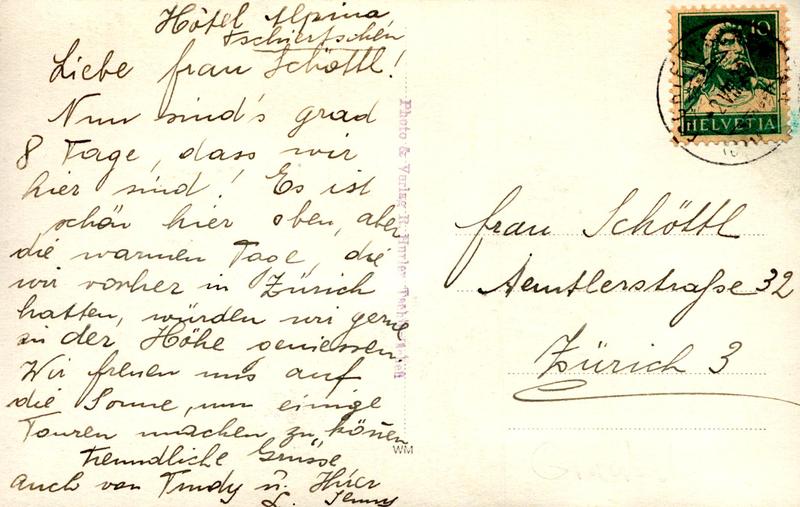 Hôtel Alpina
Tschiertschen
Liebe Frau Schöttl!
Nun sind's grad
8 Tage, dass wir
hier sind! Es ist
schön hier oben, aber
die warmen Tage, die
wir vorher in Zürich
hatten, würden wir gerne
in der Höhe geniessen.
Wir freuen uns auf
die Sonne, um einige
Touren machen zu können
Freundliche Grüsse
auch von Trudy u.
Jenny
Photo & Verlag
WM
10
HELVETIA
Frau Schöttl
Aemtlerstraße 32
Zürich 3